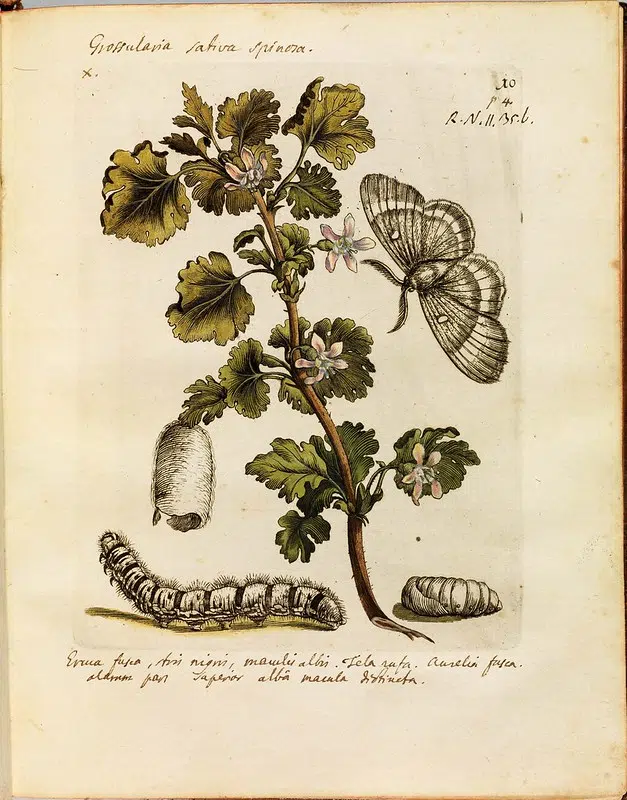 Grossularia sativa spinosa.
x.
10
p 4
R. N. 11. 35. b.
Eruca fusca, striis nigris, maculis albis. Tela rufa. Aurelia fusca.
alarum pars superior albâ macula distincta.